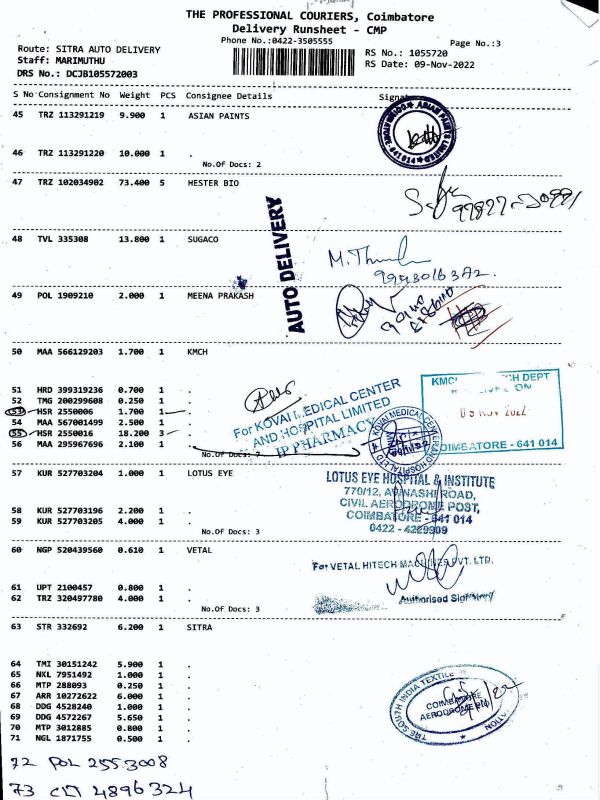 THE PROFESSIONAL COURIERS, Coimbatore
Delivery Runsheet - CMP
Phone No.:0422-3505555
Page No.:3
Route: SITRA AUTO DELIVERY
Staff: MARIMUTHU
DRS No.: DCJB105572003
RS No.: 1055720
RS Date: 09-Nov-2022
S No Consignment No Weight PCS Consignee Details
45 TRZ 113291219 9.900 1 ASIAN PAINTS
641014
46 TRZ 113291220 10.000 1 .
No.Of Docs: 2
47 TRZ 102034902 73.400 5 HESTER BIO
48 TVL 335308 13.800 1 SUGACO
AUTO DELIVERY
49 POL 1909210 2.000 1 MEENA PRAKASH
50 MAA 566129203 1.700 1 KMCH
51 HRD 399319236 0.700 1 .
52 TMG 200299608 0.250 1 .
53 HSR 2550006 1.700 1 .
54 MAA 567001499 2.500 1 .
55 HSR 2550016 18.200 3 .
56 MAA 295967696 2.100 1 .
No.Of Docs: 7
For KOVAI MEDICAL CENTER
AND HOSPITAL LIMITED
IP PHARMACY
COIMBATORE - 641 014
57 KUR 527703204 1.000 1 LOTUS EYE
58 KUR 527703196 2.200 1 .
59 KUR 527703205 4.000 1 .
No.Of Docs: 3
LOTUS EYE HOSPITAL & INSTITUTE
770/12, AVINASHI ROAD,
CIVIL AERODROME POST,
COIMBATORE - 641 014
0422 - 4229909
60 NGP 520439560 0.610 1 VETAL
For VETAL HITECH MACHINES PVT. LTD.
61 UPT 2100457 0.800 1 .
62 TRZ 320497780 4.000 1 .
No.Of Docs: 3
Authorised Signatory
63 STR 332692 6.200 1 SITRA
64 TMI 30151242 5.900 1 .
65 NKL 7951492 1.000 1 .
66 MTP 288093 0.250 1 .
67 ARR 10272622 6.000 1 .
68 DDG 4528240 1.000 1 .
69 DDG 4572267 5.650 1 .
70 MTP 3012885 0.800 1 .
71 NGL 1871755 0.500 1 .
THE SOUTH INDIA TEXTILE
COIMBATORE
AERODROME P.O
72 POL 2553008
73 CIT 4896324